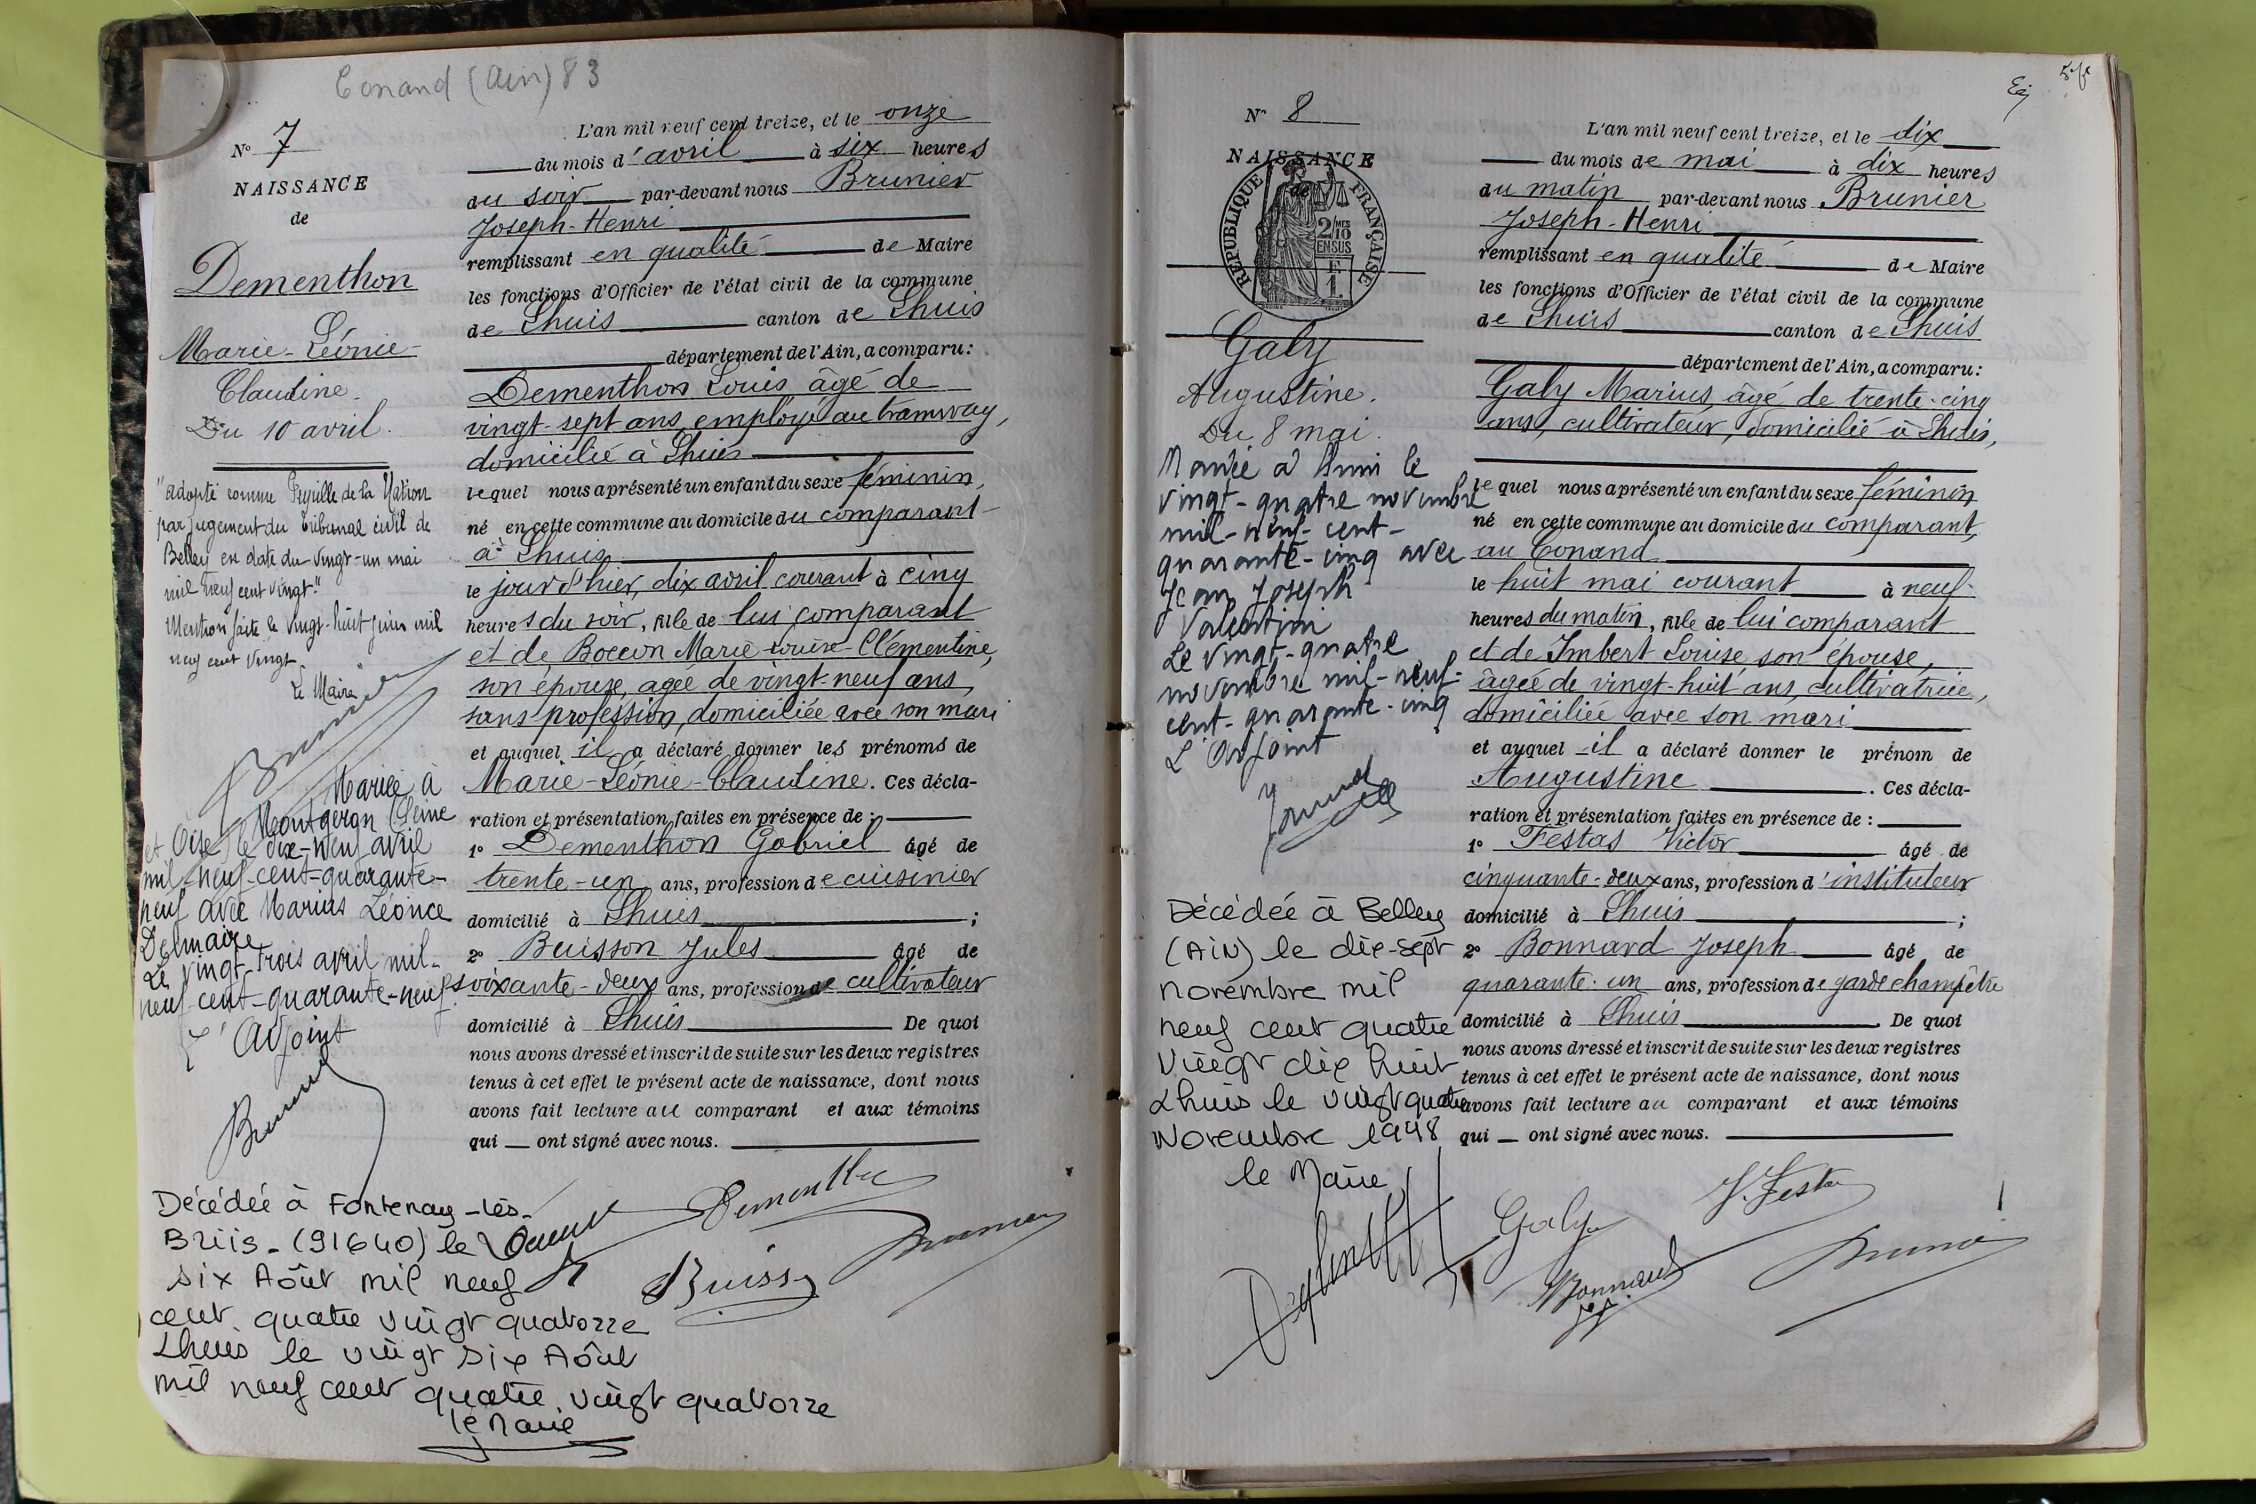 Conand (Ain) 83
N° 7
NAISSANCE
de
Dementhon
Marie-Léonie-
Claudine.
Du 10 avril.
"adopté comme Pupille de la Nation
par jugement du Tribunal civil de
Belley en date du vingt-un mai
mil neuf cent vingt."
Mention faite le vingt-huit juin mil
neuf cent vingt.
Le Maire
Mariée à
Montgeron (Seine
et Oise) le dix-neuf avril
mil-neuf-cent-quarante-
neuf avec Marius Léonce
Delmaire
Le vingt-trois avril mil-
neuf-cent-quarante-neuf
L'Adjoint
Décédée à Fontenay-lès-
Briis-(91640) le
six Août mil neuf
cent quatre vingt quatorze
Lhuis le vingt six Août
mil neuf cent quatre vingt quatorze
le Maire
L'an mil neuf cent treize, et le onze
du mois d'avril à six heures
du soir par-devant nous Brunier
Joseph-Henri
remplissant en qualité de Maire
les fonctions d'Officier de l'état civil de la commune
de Lhuis canton de Lhuis
département de l'Ain, a comparu:
Dementhon Louis âgé de
vingt-sept ans, employé au tramway,
domicilié à Lhuis
lequel nous a présenté un enfant du sexe féminin,
né en cette commune au domicile du comparant
à Lhuis
le jour d'hier, dix avril courant à cinq
heures du soir, fille de lui comparant
et de Boccon Marie-Louise-Clémentine,
son épouse, agée de vingt-neuf ans
sans profession, domiciliée avec son mari
et auquel il a déclaré donner les prénoms de
Marie-Léonie-Claudine. Ces décla-
ration et présentation faites en présence de:
1° Dementhon Gabriel âgé de
trente-un ans, profession de cuisinier
domicilié à Lhuis ;
2° Buisson Jules âgé de
soixante-deux ans, profession de cultivateur
domicilié à Lhuis De quoi
nous avons dressé et inscrit de suite sur les deux registres
tenus à cet effet le présent acte de naissance, dont nous
avons fait lecture au comparant et aux témoins
qui ont signé avec nous.
Dementhon
Buisson
Brunier
N° 8
NAISSANCE
de
RÉPUBLIQUE FRANÇAISE
2/10 MES
EN SUS
Galy
Augustine.
Du 8 mai.
Mariée à Lhuis le
vingt-quatre novembre
mil-neuf-cent-
quarante-cinq avec
Jean Joseph
Valentin
Le vingt-quatre
novembre mil-neuf-
cent-quarante-cinq
L'Adjoint
Décédée à Belley
(AIN) le dix-sept
novembre mil
neuf cent quatre
vingt dix huit
Lhuis le vingt quatre
Novembre 1948
le Maire
L'an mil neuf cent treize, et le dix
du mois de mai à dix heures
du matin par-devant nous Brunier
Joseph-Henri
remplissant en qualité de Maire
les fonctions d'Officier de l'état civil de la commune
de Lhuis canton de Lhuis
département de l'Ain, a comparu:
Galy Marius, âgé de trente-cinq
ans, cultivateur, domicilié à Lhuis,
lequel nous a présenté un enfant du sexe féminin
né en cette commune au domicile du comparant,
au Conand
le huit mai courant à neuf
heures du matin, fille de lui comparant
et de Imbert Louise son épouse,
âgée de vingt-huit ans, cultivatrice,
domiciliée avec son mari
et auquel il a déclaré donner le prénom de
Augustine. Ces décla-
ration et présentation faites en présence de:
1° Festas Victor âgé de
cinquante-deux ans, profession d'instituteur
domicilié à Lhuis ;
2° Bonnard Joseph âgé de
quarante-un ans, profession de garde champêtre
domicilié à Lhuis De quoi
nous avons dressé et inscrit de suite sur les deux registres
tenus à cet effet le présent acte de naissance, dont nous
avons fait lecture au comparant et aux témoins
qui ont signé avec nous.
V. Festas
Galy
Bonnard
Brunier